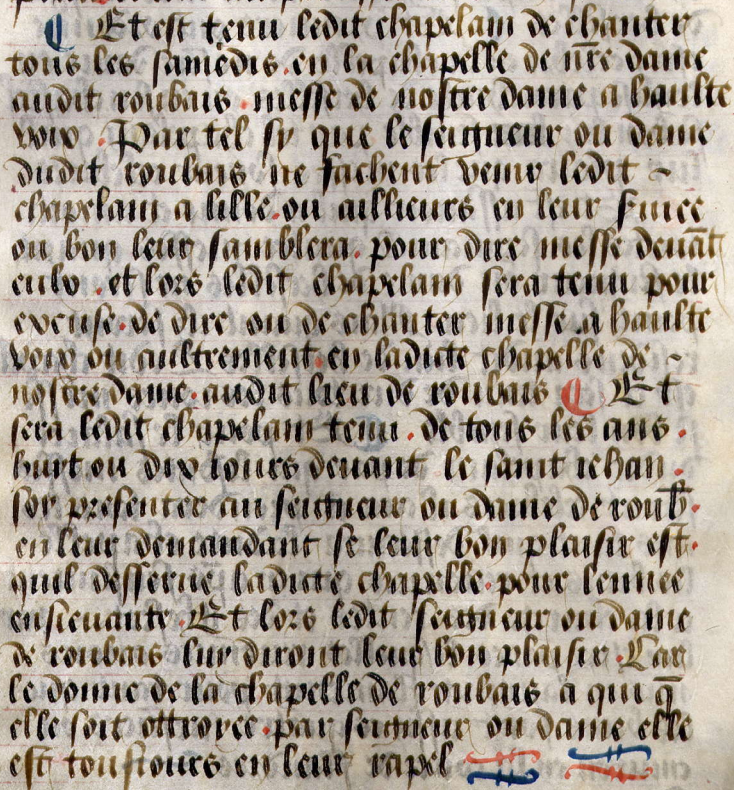 Et est tenu ledit chapelain de chanter
tous les samedis . en la chapelle de nr̄e dame
audit roubais . messe de nostre dame a haulte
voix . Par tel sy que le seigneur ou dame
dudit roubais ne facent venir ledit ~
chapelain a lille . ou aillieurs en leur
ou bon leur samblera . pour dire messe deuāt
eulx . et lors ledit chapelain sera tenu pour
excuse . de dire ou de chanter messe a haulte
voix ou aultrement . en ladicte chapelle de ~
nostre dame . audit lieu de roubais Et
sera ledit chapelain tenu . de tous les ans .
huyt ou dix iours deuant le saint iehan .
soy presenter au seigneur ou dame de roub̄ .
en leur demandant se leur bon plaisir est .
quil desserue ladicte chapelle . pour lennee
ensieuante . Et lors ledit seigneur ou dame
de roubais luy diront leur bon plaisir . Car
le donne de la chapelle de roubais a qui q̄
elle soit ottroyee . par seigneur ou dame elle
est tousiours en leur rapel